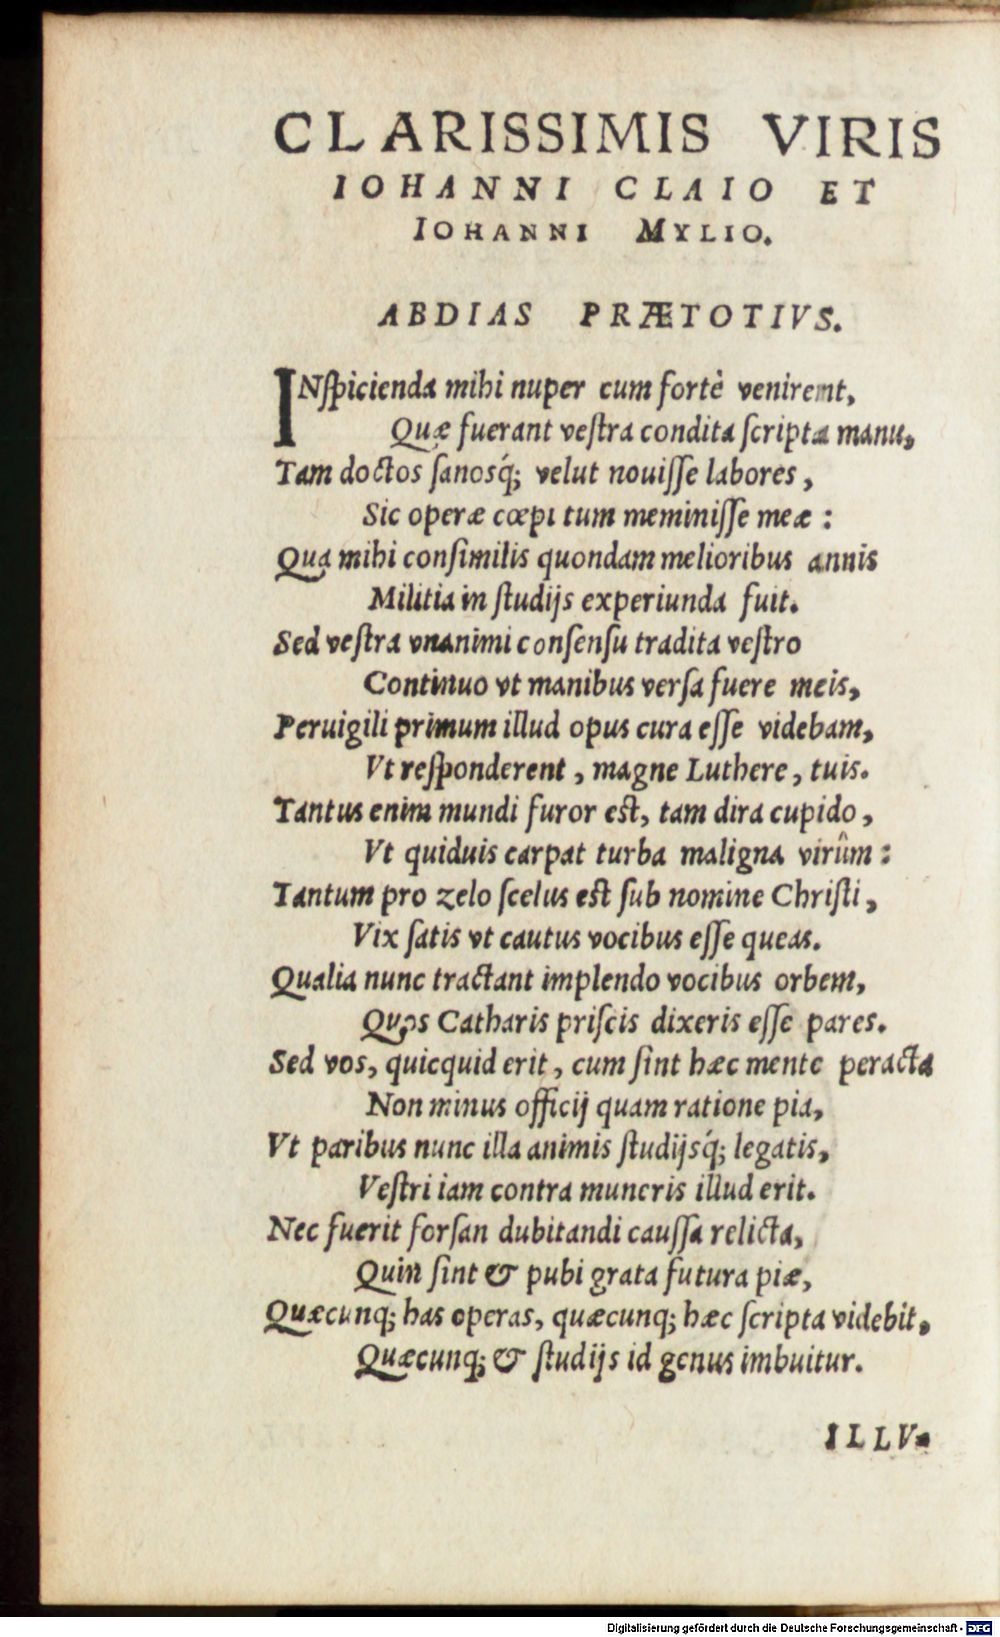 CLARISSIMIS VIRIS
IOHANNI CLAIO ET
IOHANNI MYLIO.
ABDIAS PRÆTOTIVS.
INſpicienda mihi nuper cum fortè venirent,
Quæ fuerant veſtra condita ſcripta manu,
Tam doctos ſanosq́; velut nouiſſe labores,
Sic operæ cœpi tum meminiſſe meæ:
Qua mihi conſimilis quondam melioribus annis
Militia in ſtudijs experiunda fuit.
Sed veſtra vnanimi conſenſu tradita veſtro
Continuo vt manibus verſa fuere meis,
Peruigili primum illud opus cura eſſe videbam,
Vt reſponderent, magne Luthere, tuis.
Tantus enim mundi furor eſt, tam dira cupido,
Vt quiduis carpat turba maligna virûm:
Tantum pro zelo ſcelus eſt ſub nomine Chriſti,
Vix ſatis vt cautus vocibus eſſe queas.
Qualia nunc tractant implendo vocibus orbem,
Quos Catharis priſcis dixeris eſſe pares.
Sed vos, quicquid erit, cum ſint hæc mente peracta
Non minus officij quam ratione pia,
Vt paribus nunc illa animis ſtudijsq́; legatis,
Veſtri iam contra muneris illud erit.
Nec fuerit forſan dubitandi cauſſa relicta,
Quin ſint & pubi grata futura piæ,
Quæcunq; has operas, quæcunq; hæc ſcripta videbit,
Quæcunq; & ſtudijs id genus imbuitur.
ILLV-
Digitalisierung gefördert durch die Deutsche Forschungsgemeinschaft - DFG